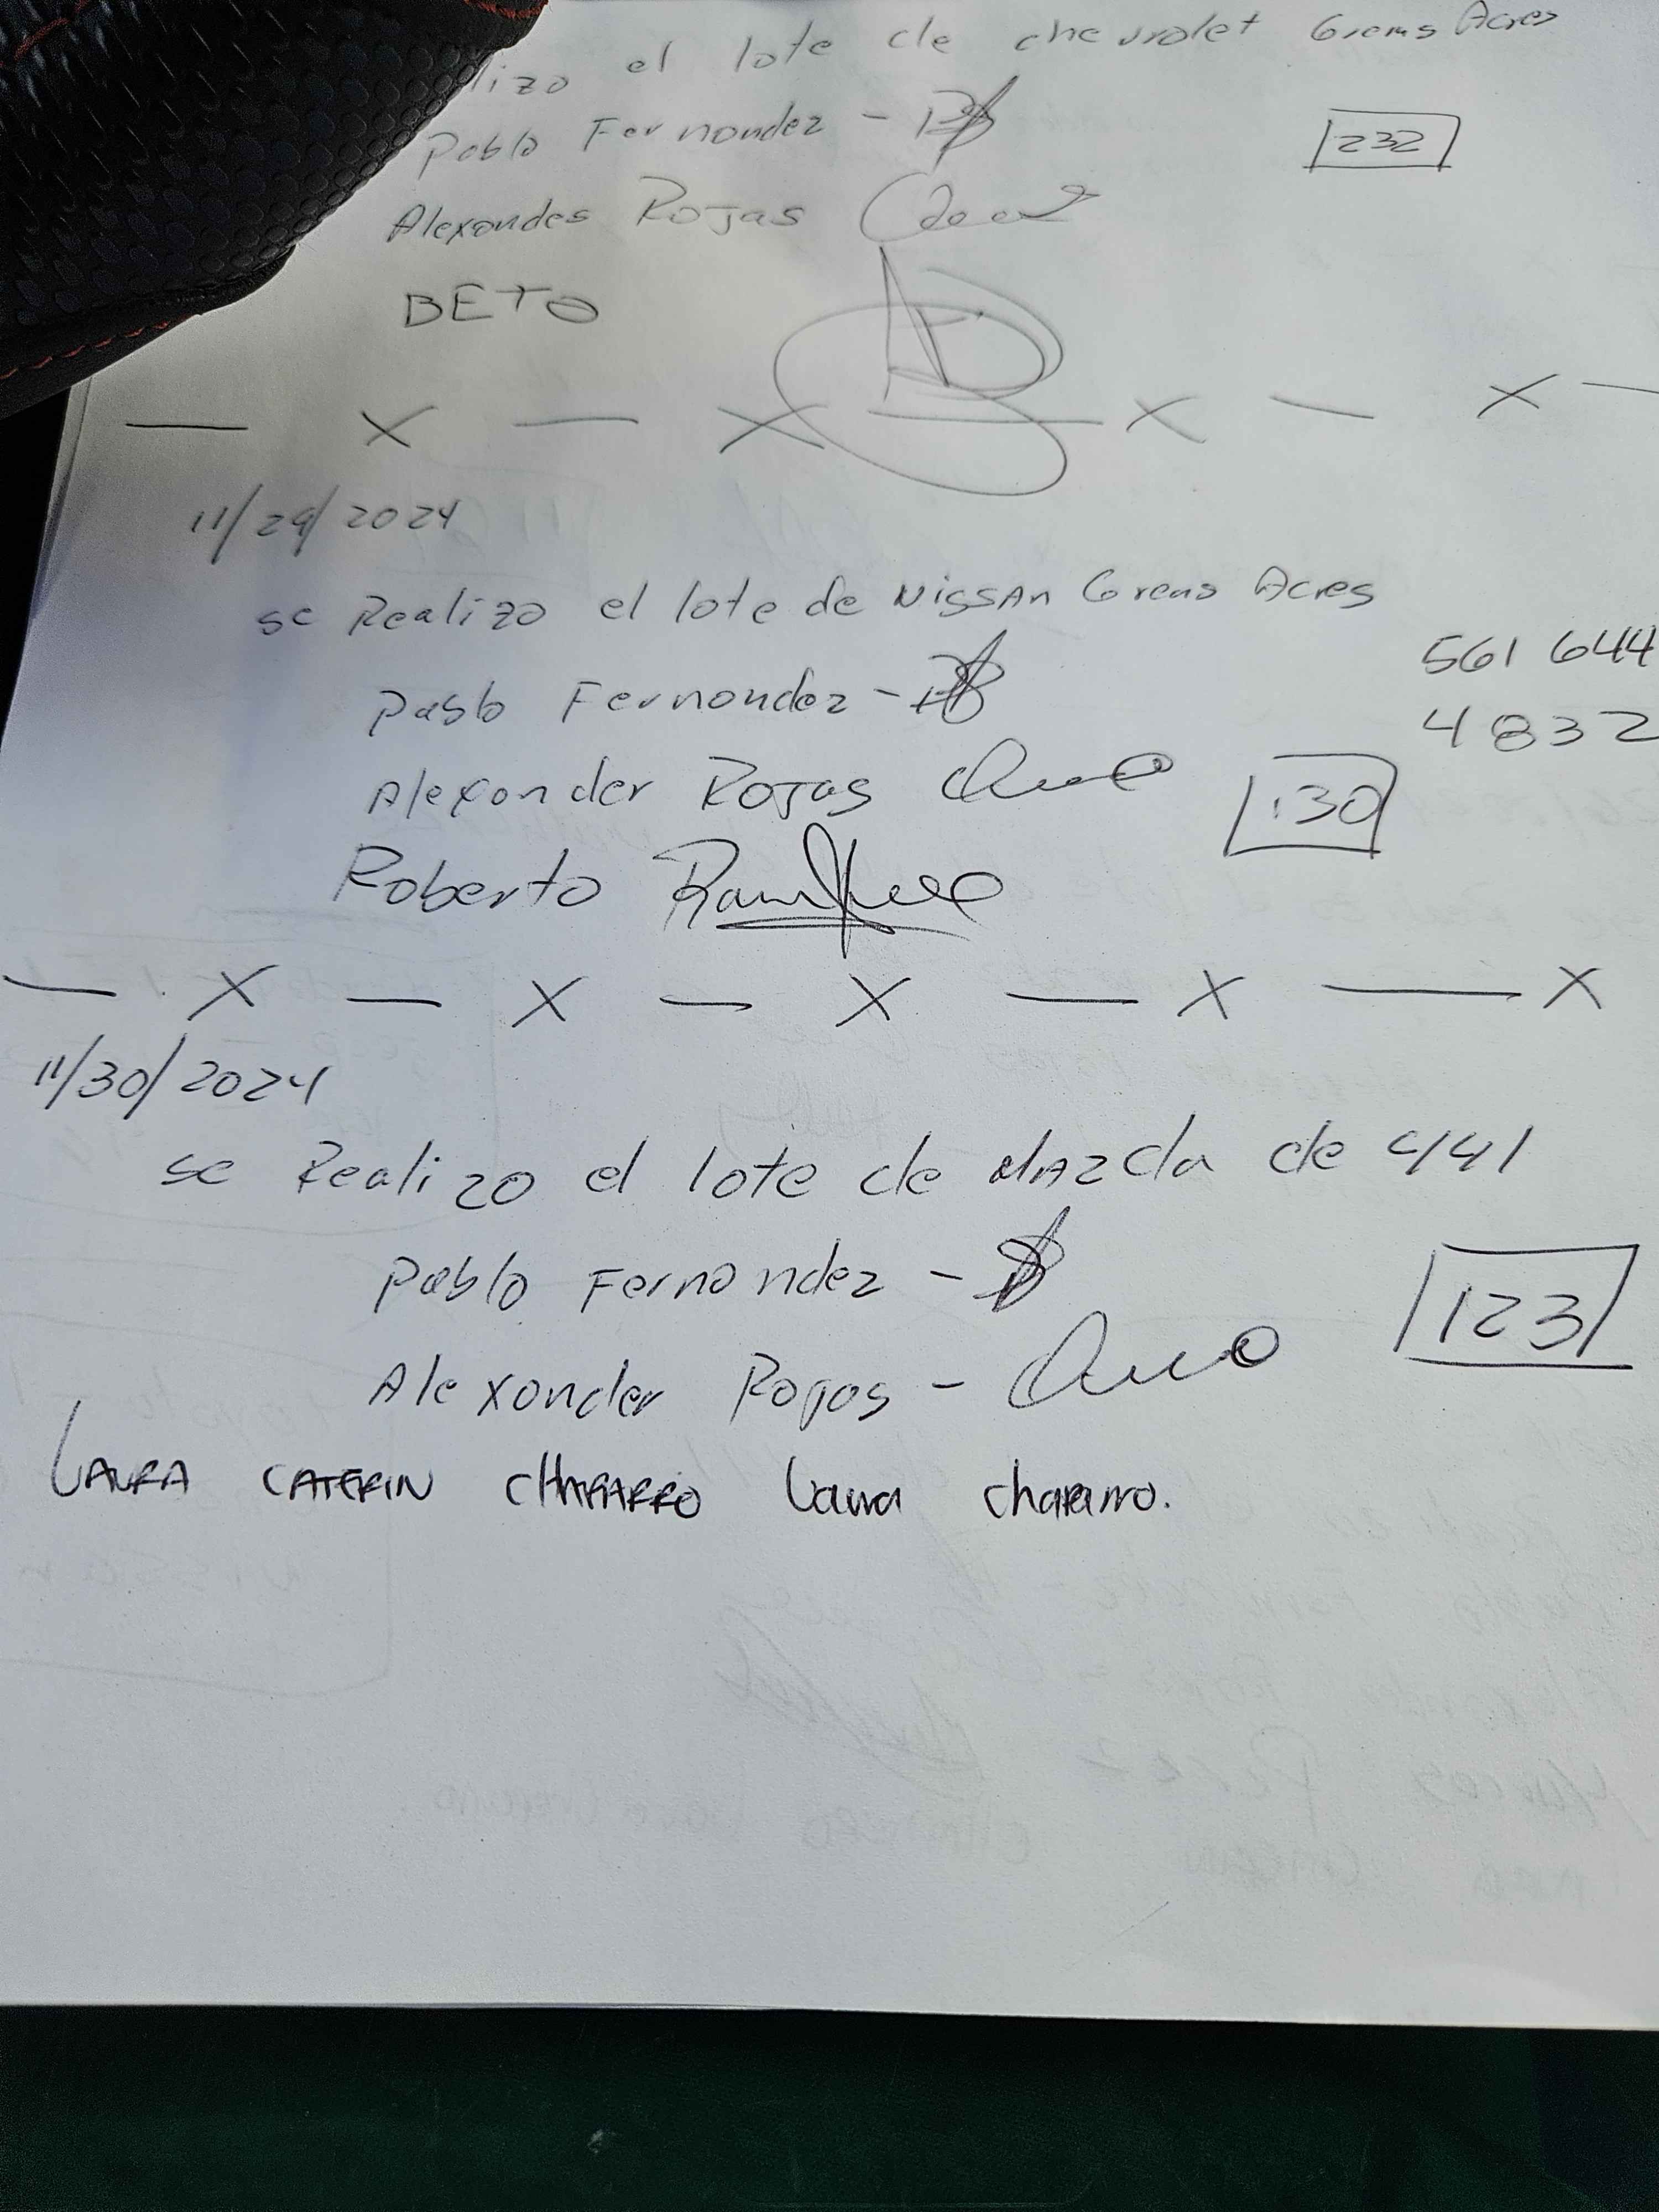 lizo el lote de chevrolet Greens Acres
Pablo Fernandez -
232
Alexandes Rojas
BETO
— X — X — X — X —
11/29/2024
se Realizo el lote de Nissan Greens Acres
561 644
4832
Pablo Fernandez -
Alexander Rojas
130
Roberto Ramirez
— X — X — X — X — X
11/30/2024
se Realizo el lote de Mazda de 441
Pablo Fernandez -
123
Alexander Rojas -
LAURA CATERIN CHAPARRO Laura chaparro.